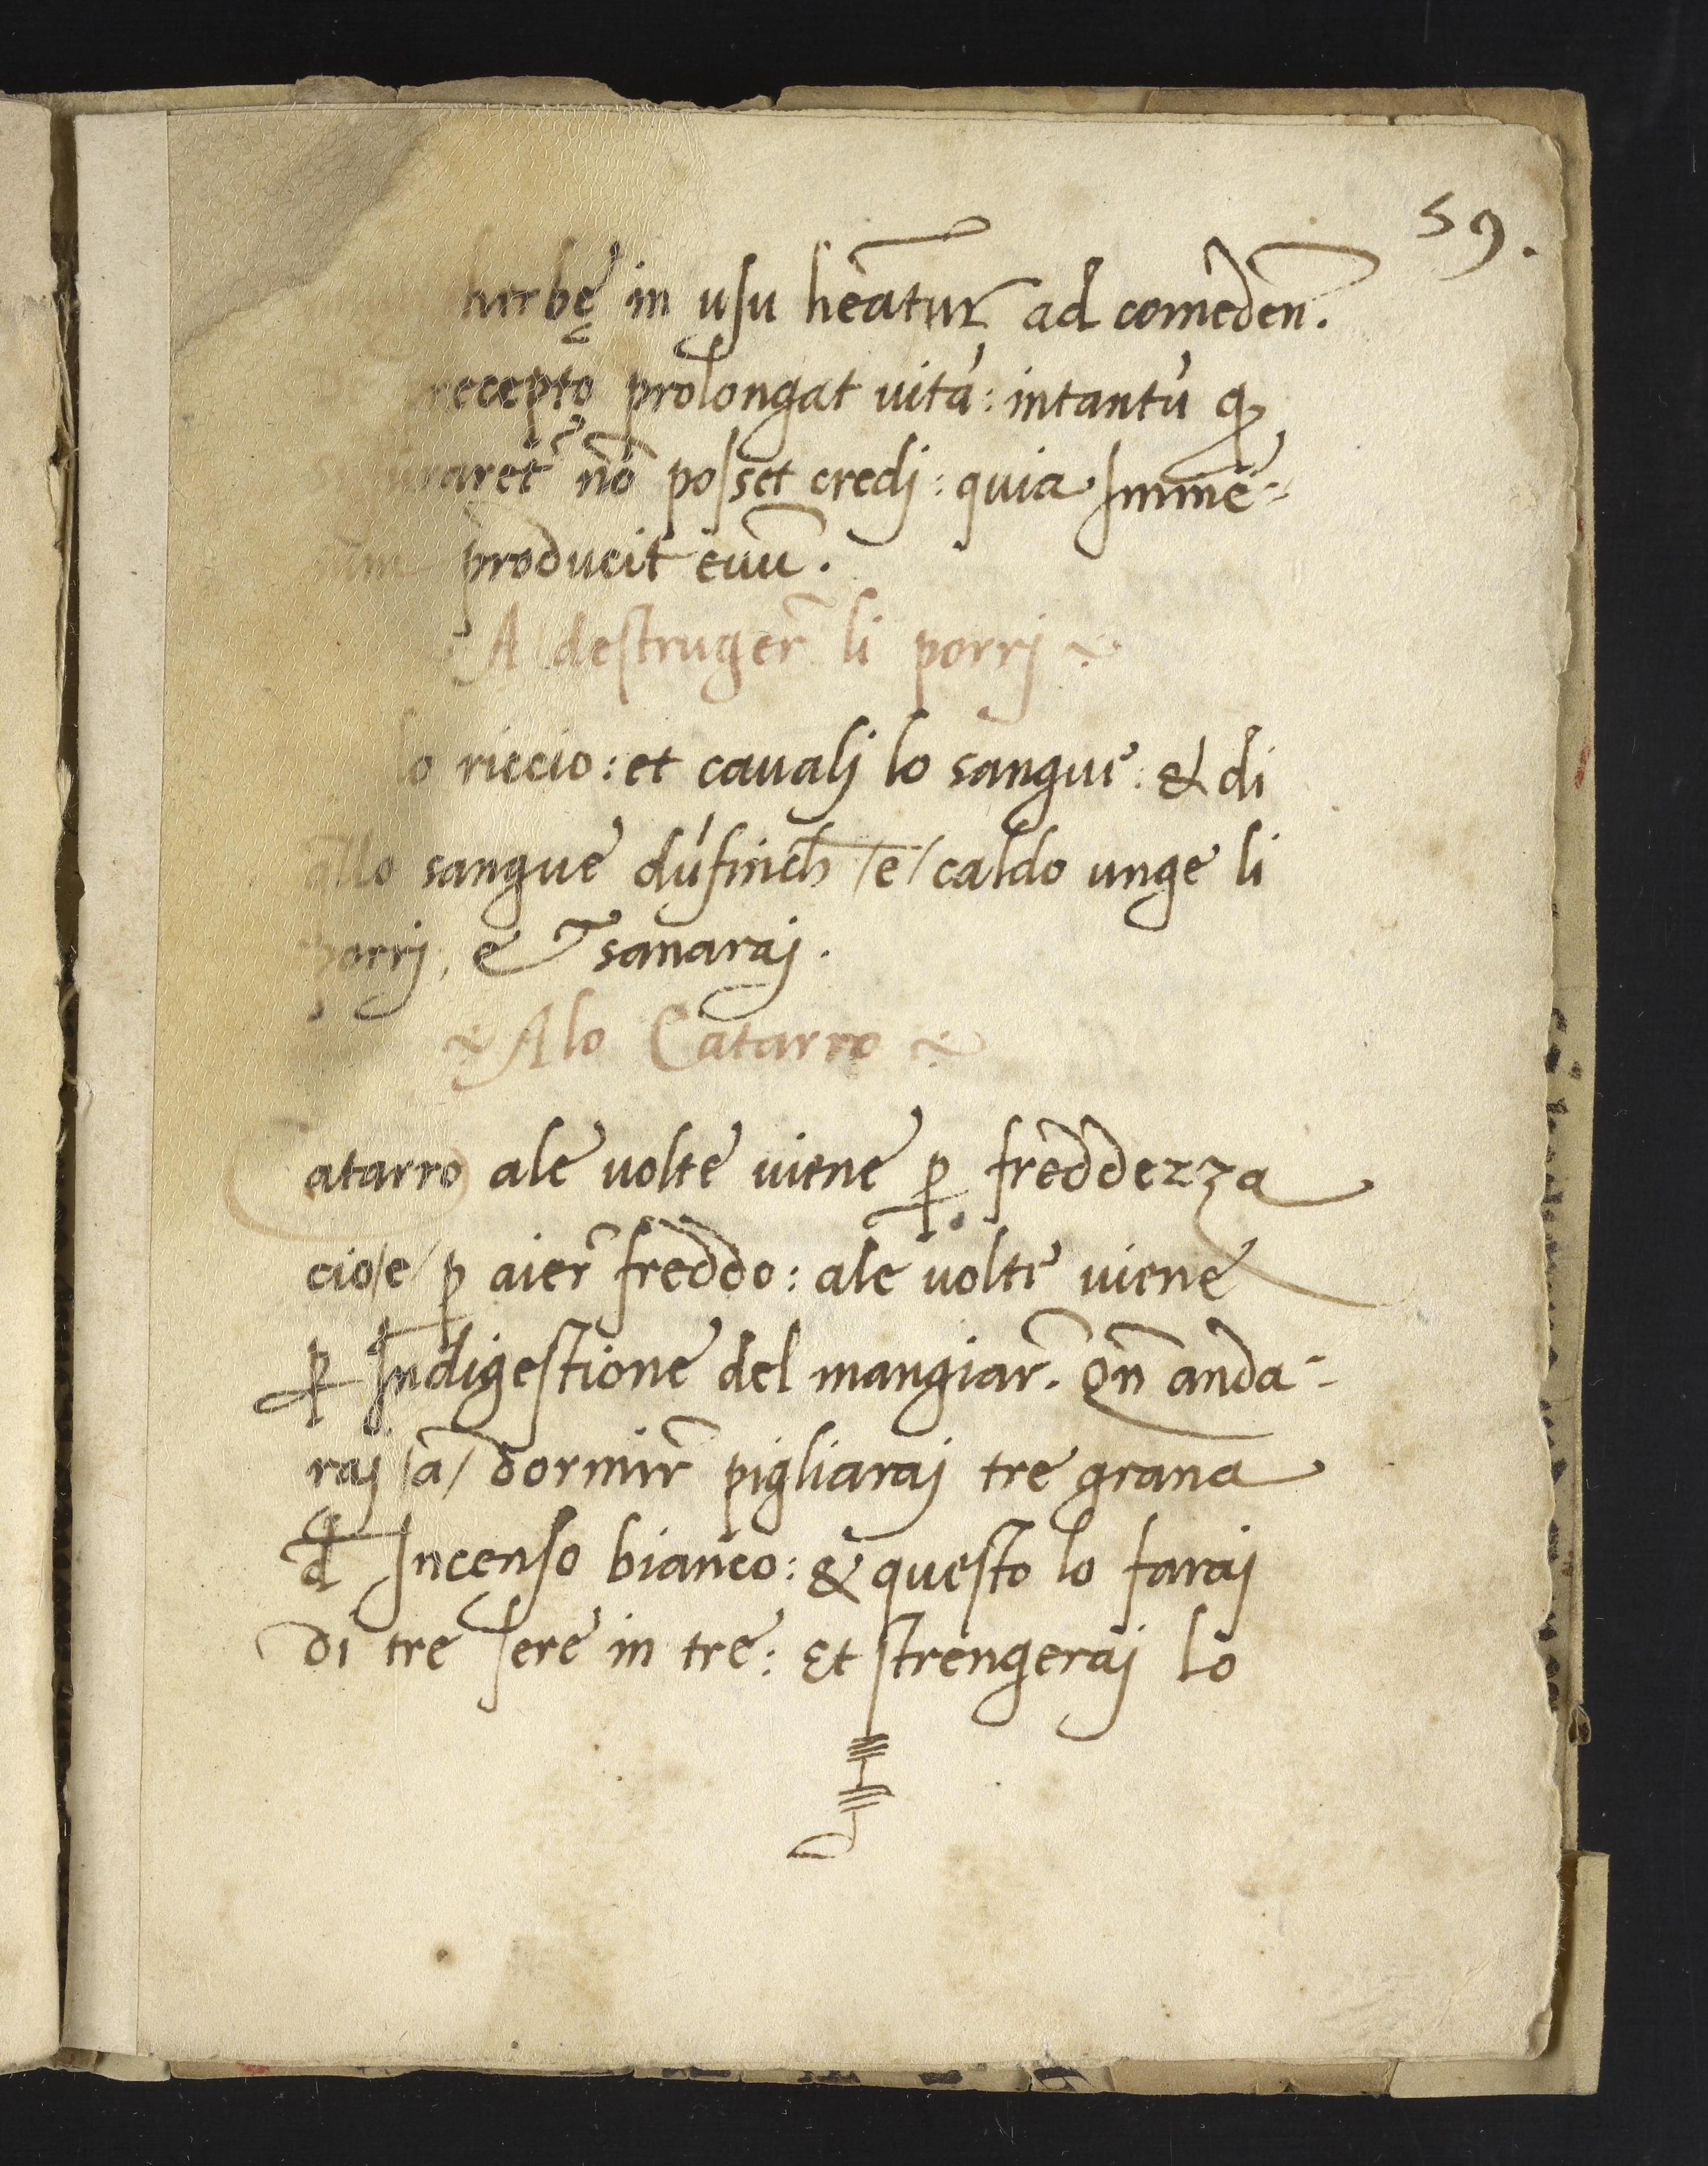 59.
herbę in usu heātur ad comēden̄.
recepto prolongat uitā: intantū ꝙ
raret̄ nō posset credj: quia Immē-
producit ēuū.
A destruger̄ li porrj
lo riccio: et caualj lo sangue: & di
q̄llo sangue dūfinch̄ /e/ caldo unge li
porrj, e t sanaraj.
Alo Catarro
Catarro ale uolte uiene ꝑ freddezza
cio/e/ ꝑ aier̄ freddo: ale uolte uiene
ꝑ Indigestione del mangiar̄. Qn̄ anda-
raj /a/ dormir̄ pigliaraj tre grana
đ Incenso bianco: & questo lo faraj
di tre sere in tre: Et strengeraj lo